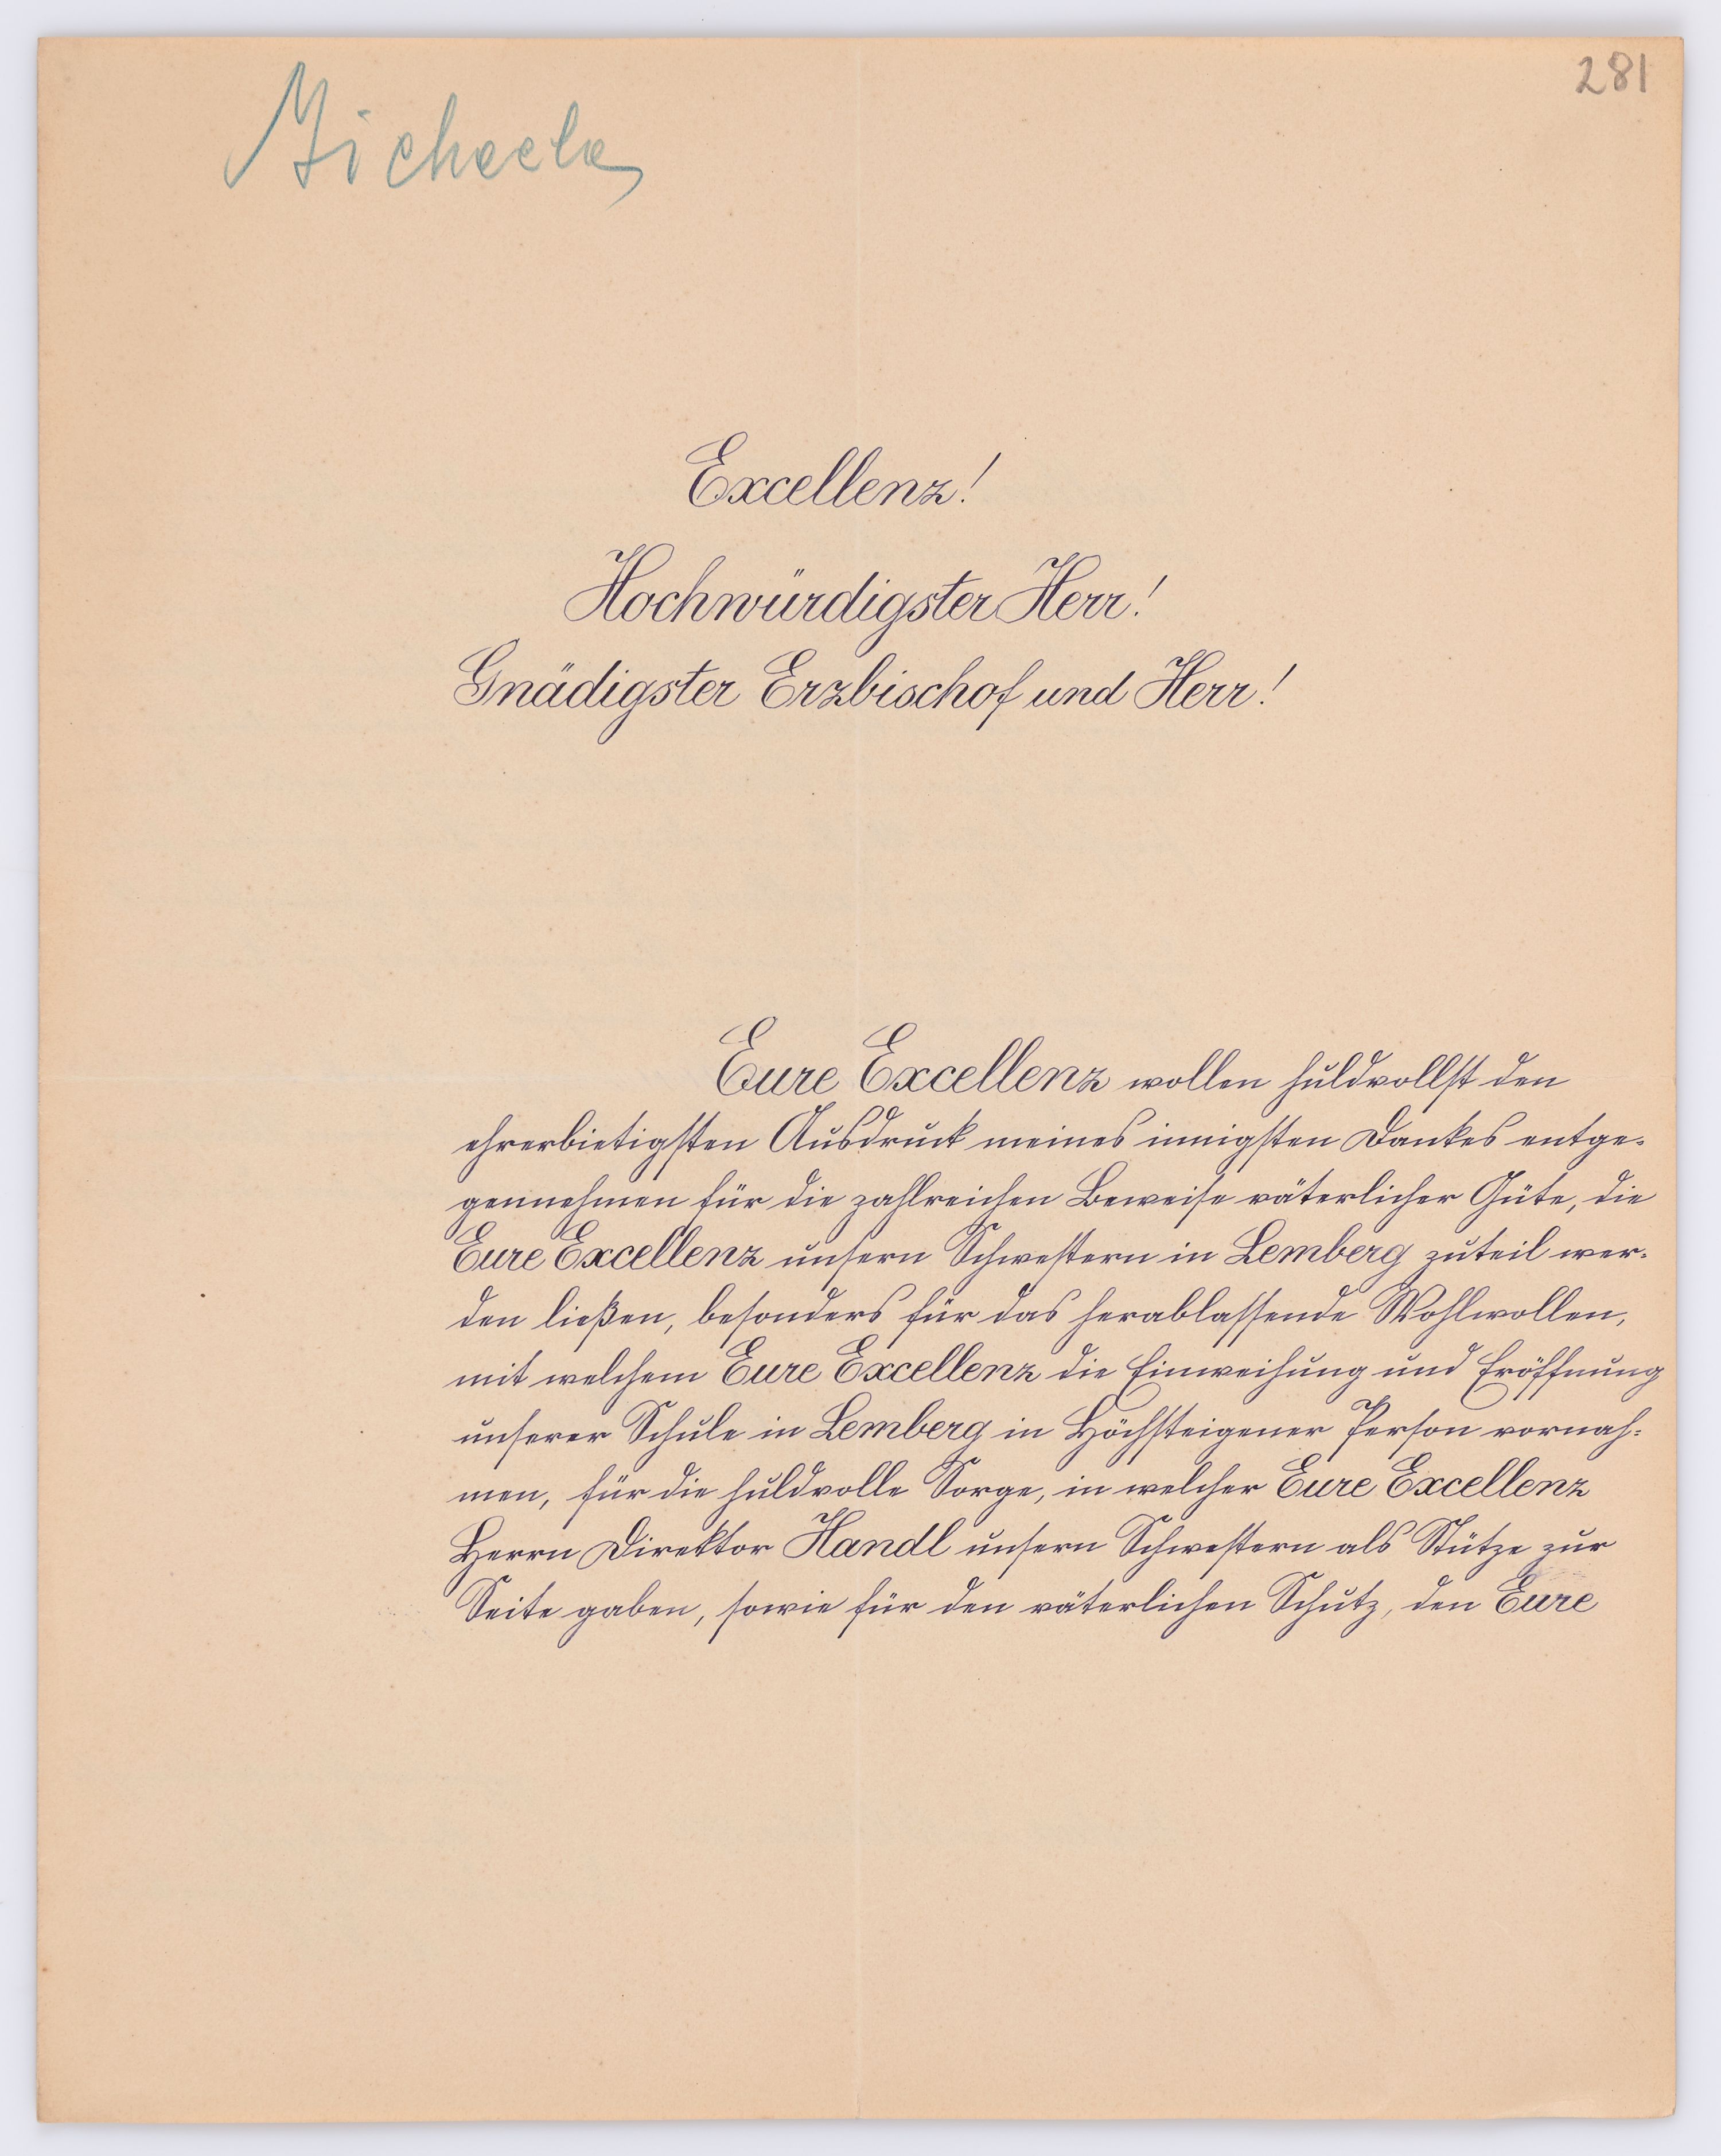 281
Michaela
Excellenz!
Hochwürdigster Herr!
Gnädigster Erzbischof und Herr!
Eure Excellenz wollen huldvollst den
ehrerbietigsten Ausdruck meines innigsten Dankes entge-
gennehmen für die zahlreichen Beweise väterlicher Güte, die
Eure Excellenz unsern Schwestern in Lemberg zuteil wer-
den ließen, besonders für das herablassende Wohlwollen,
mit welchem Eure Excellenz die Einweihung und Eröffnung
unserer Schule in Lemberg in Höchsteigener Person vornah-
men, für die huldvolle Sorge, in welcher Eure Excellenz
Herrn Direktor Handl unsern Schwestern als Stütze zur
Seite gaben, sowie für den väterlichen Schutz, den Eure